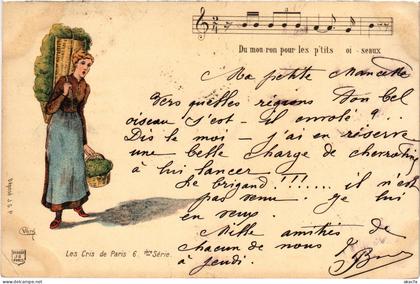 Du mou-ron pour les p'tits oi-seaux
Ma petite Nancette
Vers quelles régions ton bel
oiseau s'est-il envolé ?..
Dis le moi - j'ai en réserve
une belle charge de chevrotin
à lui lancer
Le brigand !!!!... il n'est
pas venu. je lui
en veux.
Mille amitiés de
chacun de nous
à jeudi.
Déposé J. S. P.
Les Cris de Paris 6. Série.